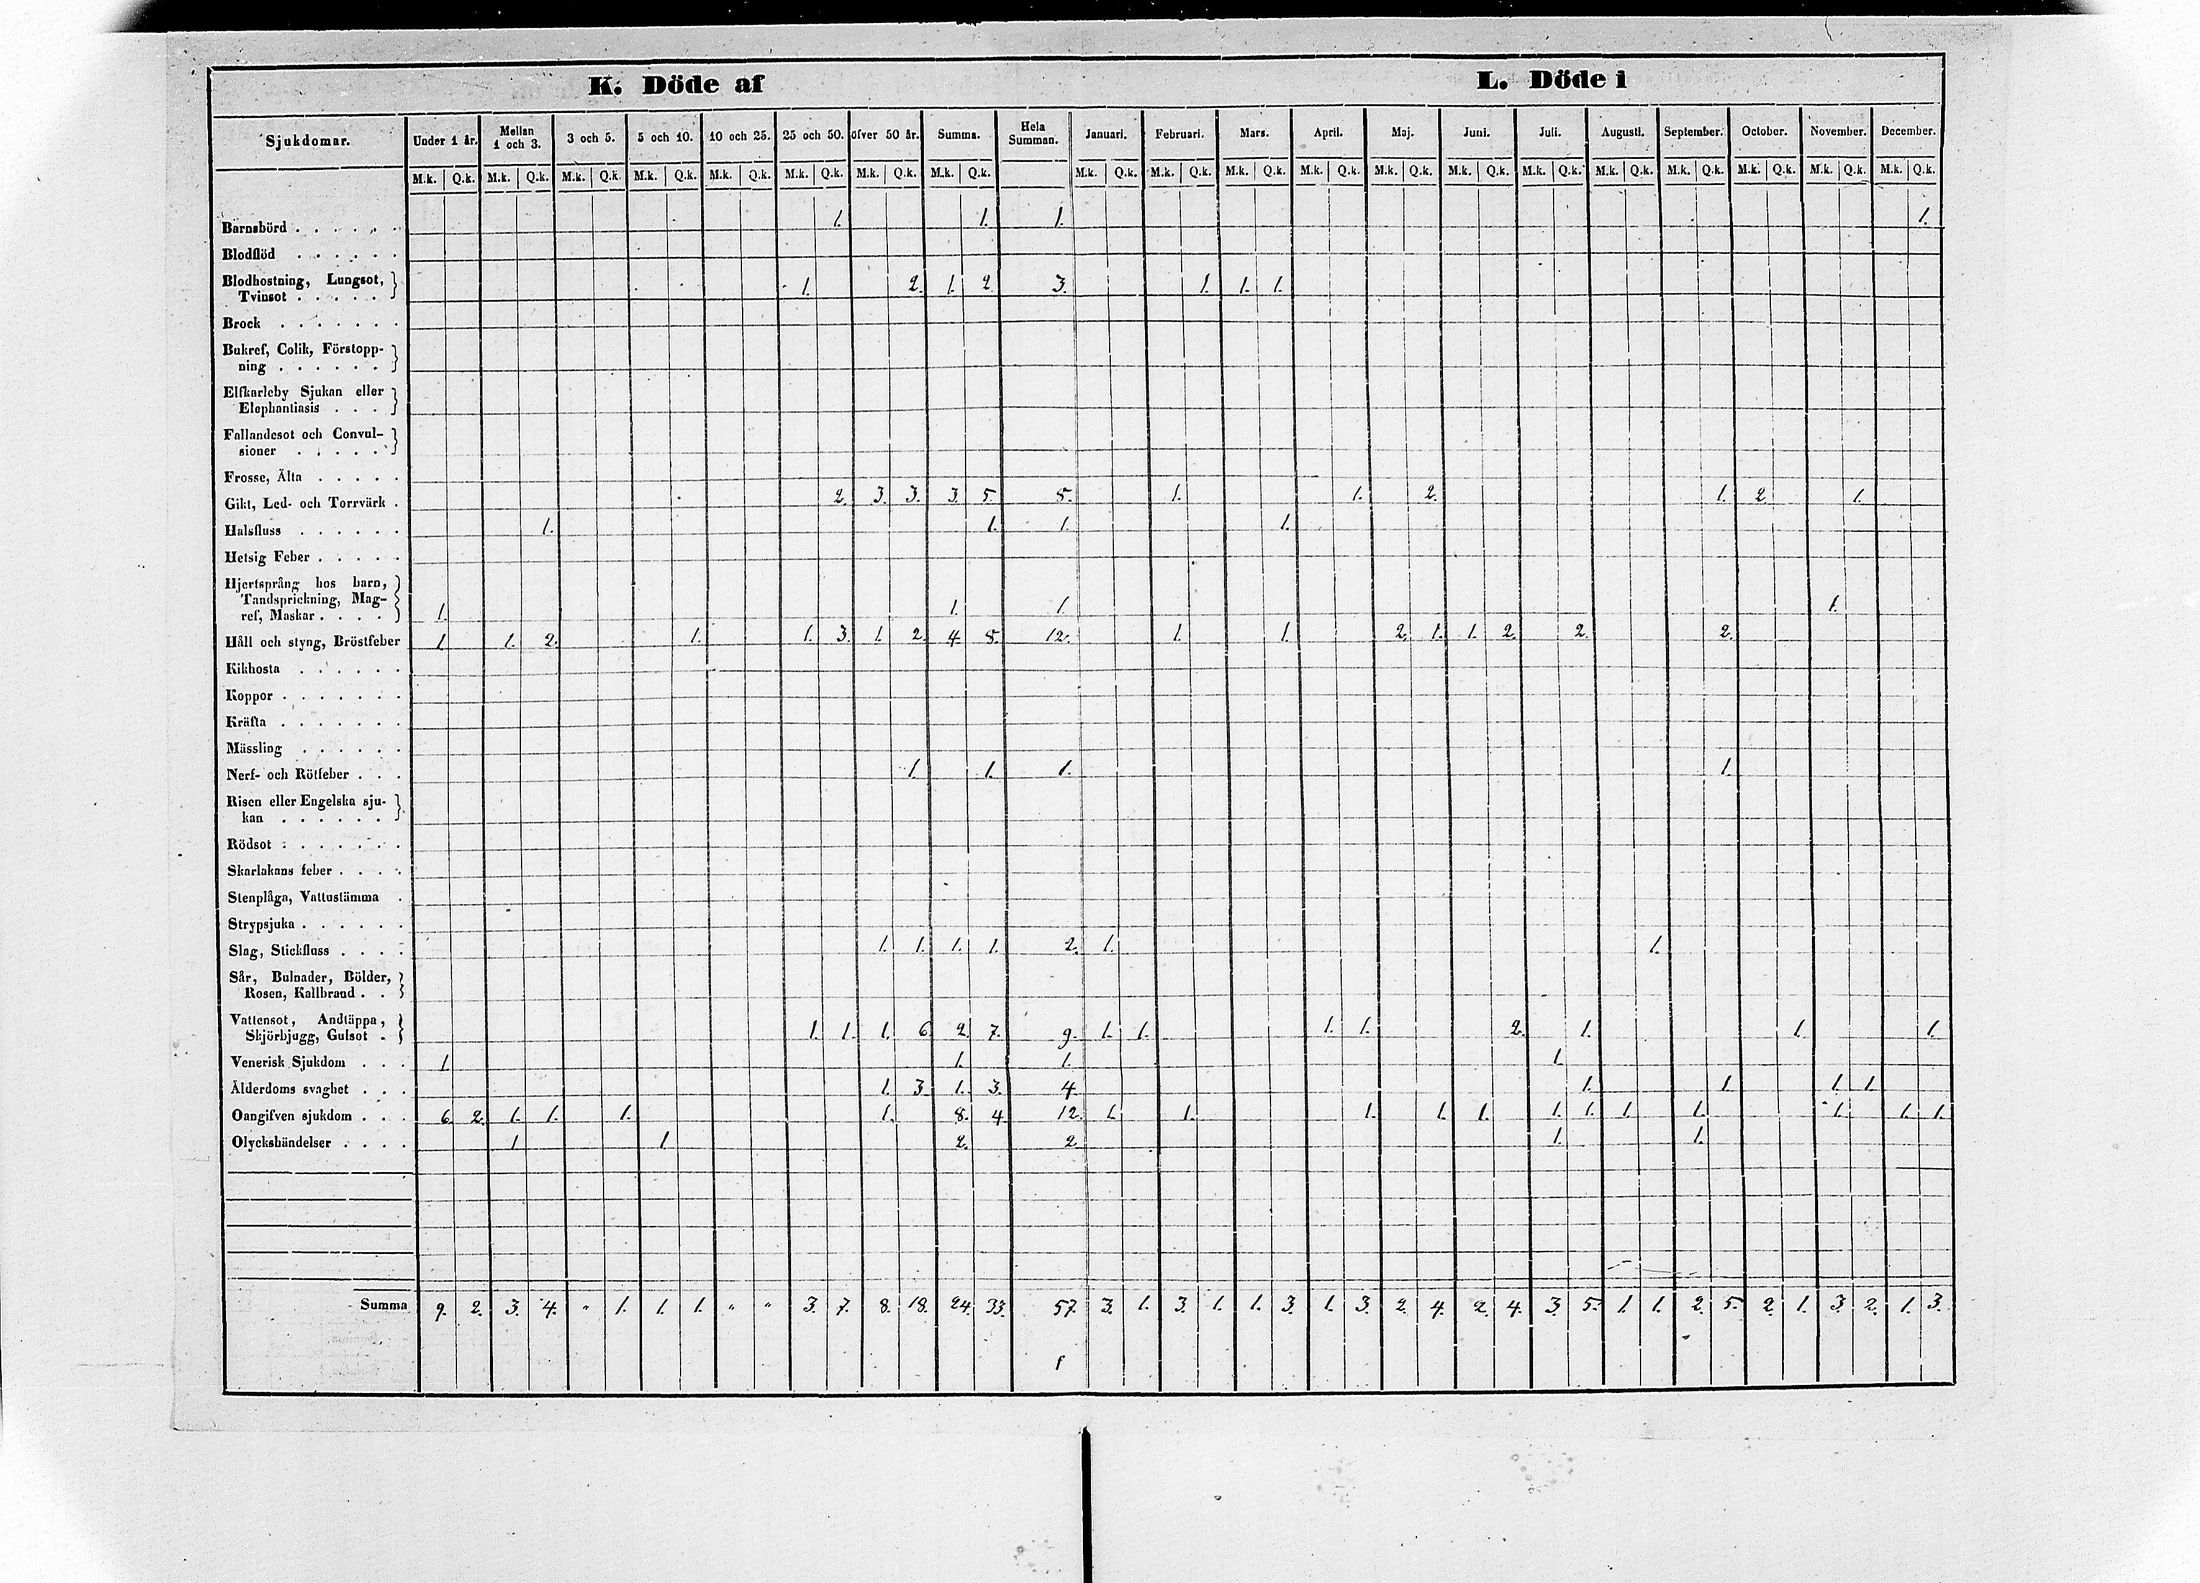 K. Döde af L. Döde i
Sjukdomar. Under 1 år. Mellan 1 och 3. 3 och 5. 5 och 10. 10 och 25. 25 och 50. öfver 50 år. Summa. Hela Summan. Januari. Februari. Mars. April. Maj. Juni. Juli. Augusti. September. October. November. December.
M.k. Q.k. M.k. Q.k. M.k. Q.k. M.k. Q.k. M.k. Q.k. M.k. Q.k. M.k. Q.k. M.k. Q.k. M.k. Q.k. M.k. Q.k. M.k. Q.k. M.k. Q.k. M.k. Q.k. M.k. Q.k. M.k. Q.k. M.k. Q.k. M.k. Q.k. M.k. Q.k. M.k. Q.k. M.k. Q.k.
Barnsbörd . . . . . . 1. 1. 1. 1.
Blodflöd . . . . . .
Blodhostning, Lungsot,
Tvinsot . . . . . 1. 2. 1. 2. 3. 1. 1. 1.
Brock . . . . . . .
Bukref, Colik, Förstopp-
ning . . . . . .
Elfkarleby Sjukan eller
Elephantiasis . . .
Fallandesot och Convul-
sioner . . . . .
Frosse, Älta . . . . .
Gikt, Led- och Torrvärk . 2. 3. 3. 3. 5. 5. 1. 1. 2. 1. 2. 1.
Halsfluss . . . . . . 1. 1. 1. 1.
Hetsig Feber . . . . .
Hjertsprång hos barn,
Tandsprickning, Mag-
ref, Maskar . . . . 1. 1. 1. 1.
Håll och styng, Bröstfeber 1. 1. 2. 1. 1. 3. 1. 2. 4. 8. 12. 1. 1. 2. 1. 1. 2. 2. 2.
Kikhosta . . . . . .
Koppor . . . . . . .
Kräfta . . . . . . .
Mässling . . . . . .
Nerf- och Rötfeber . . . 1. 1. 1. 1.
Risen eller Engelska sju-
kan . . . . . .
Rödsot . . . . . . .
Skarlakans feber . . . .
Stenplåga, Vattustämma .
Strypsjuka . . . . . .
Slag, Stickfluss . . . . 1. 1. 1. 1. 2. 1. 1.
Sår, Bulnader, Bölder,
Rosen, Kallbrand . .
Vattensot, Andtäppa,
Skjörbjugg, Gulsot . 1. 1. 1. 6. 2. 7. 9. 1. 1. 1. 1. 2. 1. 1. 1.
Venerisk Sjukdom . . . 1. 1. 1. 1.
Ålderdoms svaghet . . . 1. 3. 1. 3. 4. 1. 1. 1. 1.
Oangifven sjukdom . . . 6. 2. 1. 1. 1. 1. 8. 4. 12. 1. 1. 1. 1. 1. 1. 1. 1. 1. 1. 1. 1.
Olyckshändelser . . . . 1 1. 2. 2. 1. 1.
Summa 9. 2. 3. 4. " 1. 1. 1. " " 3. 7. 8. 18. 24. 33. 57. 3. 1. 3. 1. 1. 3. 1. 3. 2. 4. 2. 4. 3. 5. 1. 1. 2. 5. 2. 1. 3. 2. 1. 3.